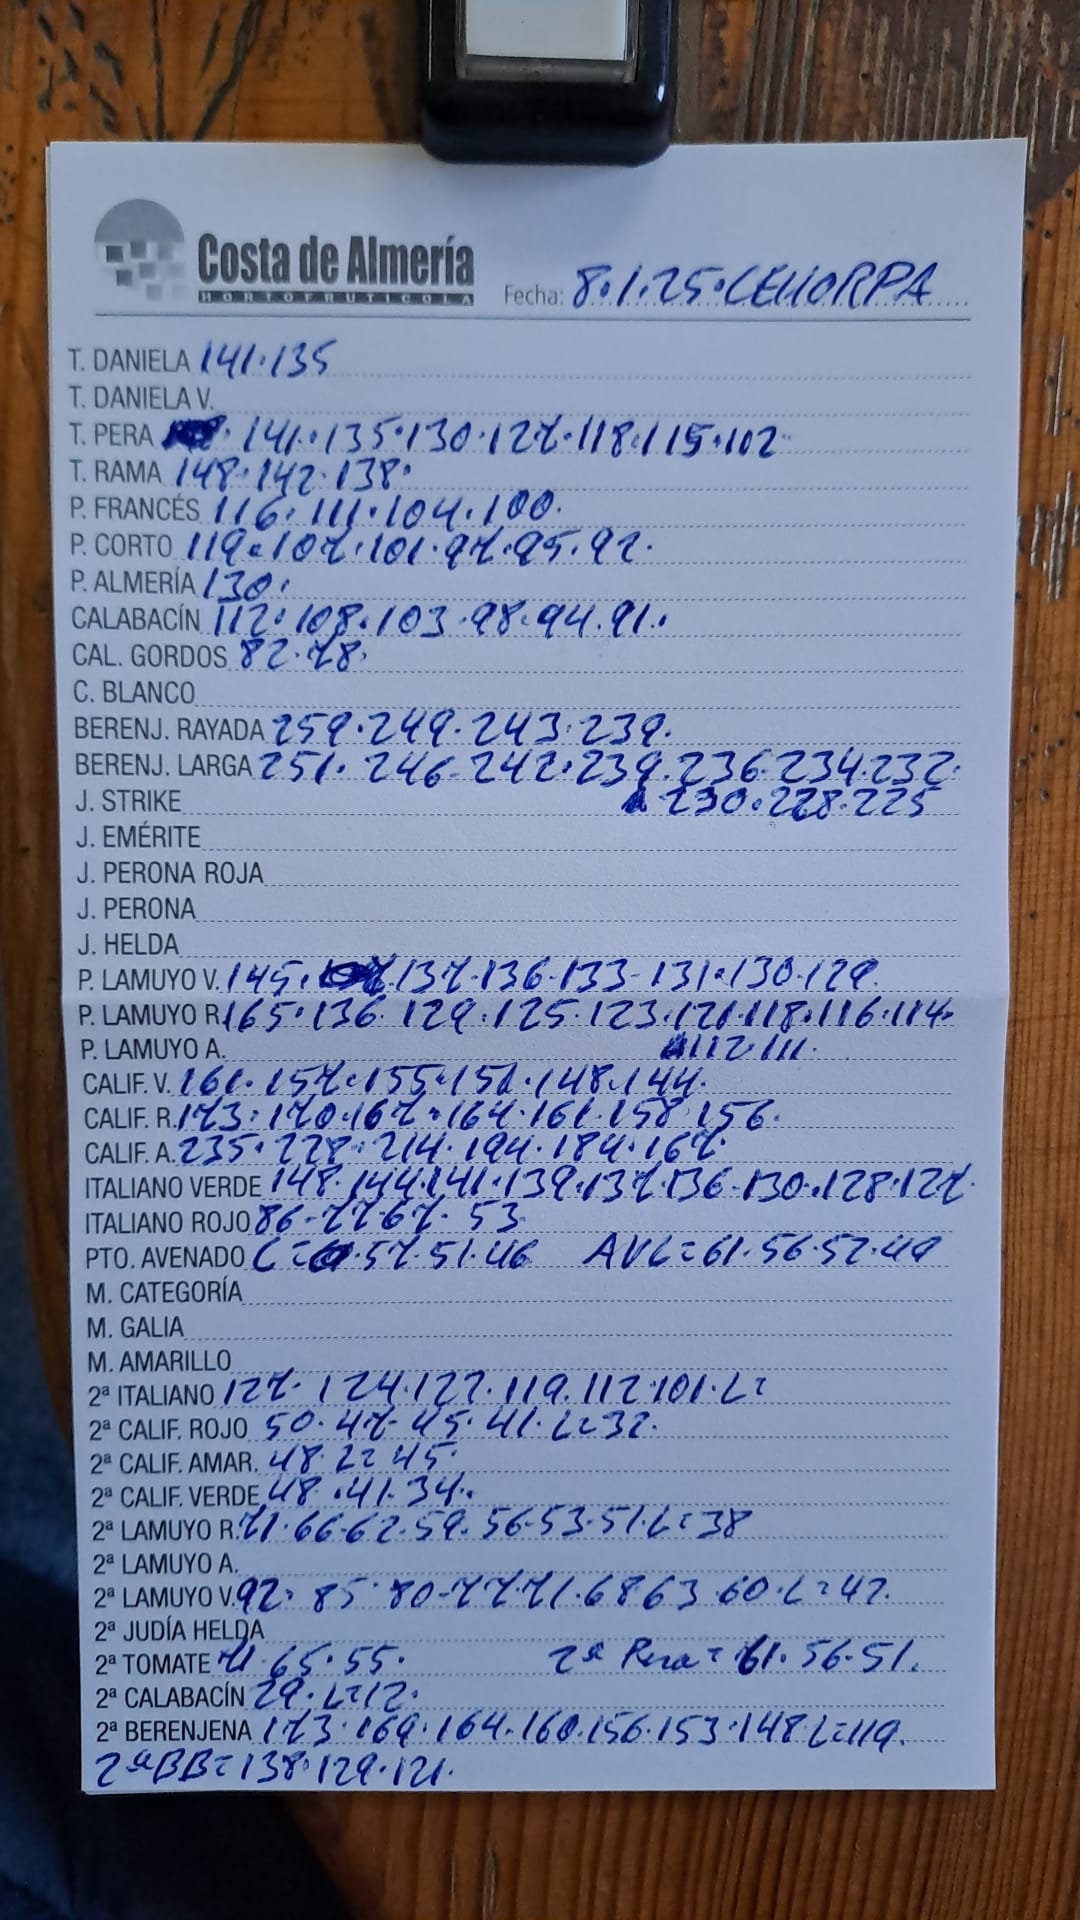 Costa de Almería
HORTOFRUTICOLA
Fecha: 8.1.25.CEHORPA
T. DANIELA 141.135
T. DANIELA V.
T. PERA 141.135.130.127.118.115.102
T. RAMA 148.142.138.
P. FRANCÉS 116.111.104.100.
P. CORTO 119.107.101.97.95.92.
P. ALMERÍA 130.
CALABACÍN 112.108.103.98.94.91.
CAL. GORDOS 82.78.
C. BLANCO
BERENJ. RAYADA 259.249.243.239.
BERENJ. LARGA 251.246.242.239.236.234.232.
J. STRIKE 230.228.225
J. EMÉRITE
J. PERONA ROJA
J. PERONA
J. HELDA
P. LAMUYO V. 145.137.136.133.131.130.129.
P. LAMUYO R. 165.136.129.125.123.121.118.116.114.
P. LAMUYO A. 112.111.
CALIF. V. 161.157.155.151.148.144.
CALIF. R. 173.170.167.164.161.158.156.
CALIF. A. 235.228.214.194.184.167.
ITALIANO VERDE 148.144.141.139.137.136.130.128.127.
ITALIANO ROJO 86-77-67-53
PTO. AVENADO C= .57.51.46 AVL=61.56.52.49
M. CATEGORÍA
M. GALIA
M. AMARILLO
2ª ITALIANO 127.124.122.119.112.101.L=
2ª CALIF. ROJO 50.47.45.41.L=32.
2ª CALIF. AMAR. 48.L=45.
2ª CALIF. VERDE 48.41.34.
2ª LAMUYO R. 71.66.62.59.56.53.51.L=38
2ª LAMUYO A.
2ª LAMUYO V. 92.85.80.77.71.68.63.60.L=42.
2ª JUDÍA HELDA
2ª TOMATE 71.65.55. 2ª Pera=61.56.51.
2ª CALABACÍN 29.L=12.
2ª BERENJENA 173.169.164.160.156.153.148.L=119.
2ªBB=138.129.121.